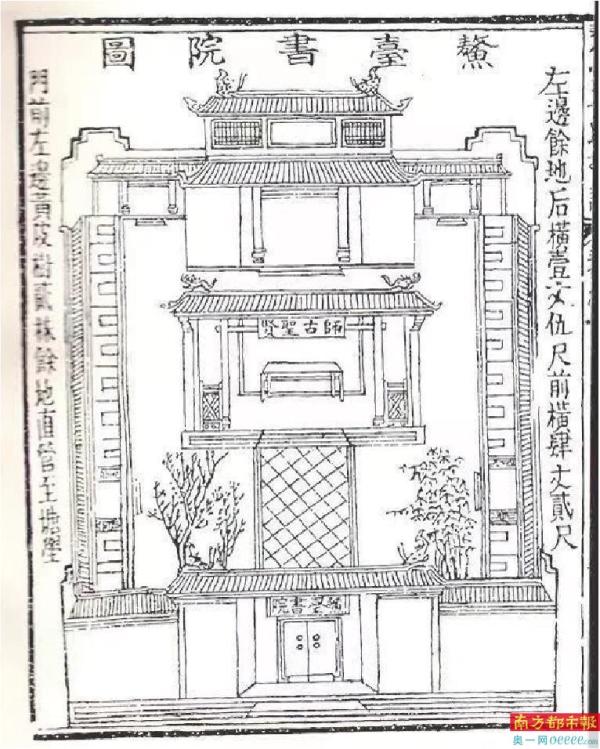 鰲臺書院圖
左邊餘地后橫壹丈伍尺前橫肆丈貳尺
師古聖賢
鰲臺書院
門前左邊黃皮樹貳株餘地直管至塘壆
南方都市報
奥一网oeeee.com